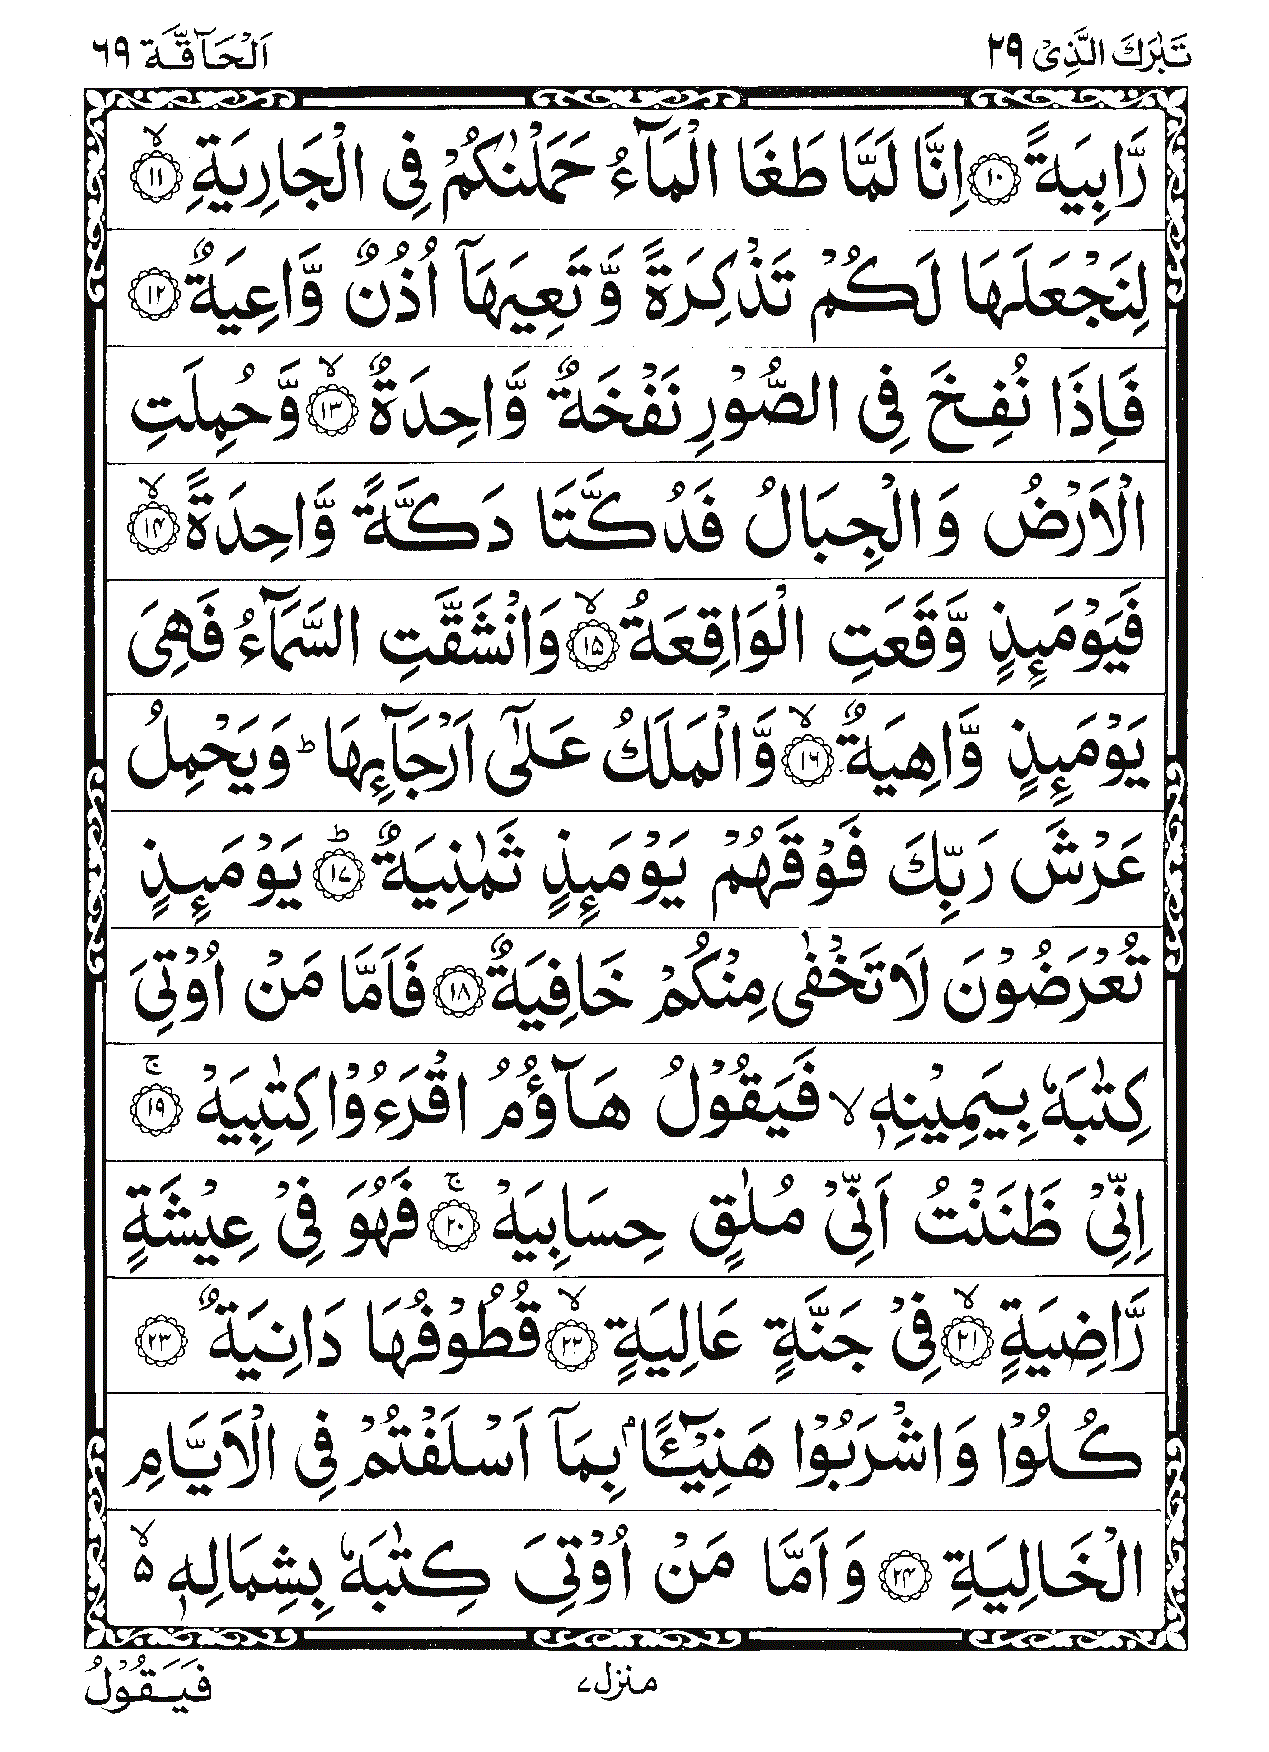 تَبٰرَكَ الَّذِیْ ۲۹
اَلْحَآقَّة ٦٩
رَّابِيَةً ۝۱۰ اِنَّا لَمَّا طَغَا الْمَآءُ حَمَلْنٰكُمْ فِی الْجَارِيَةِ ۝۱۱ۙ
لِنَجْعَلَهَا لَكُمْ تَذْكِرَةً وَّتَعِيَهَاۤ اُذُنٌ وَّاعِيَةٌ ۝۱۲
فَاِذَا نُفِخَ فِی الصُّوْرِ نَفْخَةٌ وَّاحِدَةٌ ۝۱۳ۙ وَّحُمِلَتِ
الْاَرْضُ وَالْجِبَالُ فَدُكَّتَا دَكَّةً وَّاحِدَةً ۝۱۴ۙ
فَيَوْمَىِٕذٍ وَّقَعَتِ الْوَاقِعَةُ ۝۱۵ۙ وَانْشَقَّتِ السَّمَآءُ فَهِیَ
يَوْمَىِٕذٍ وَّاهِيَةٌ ۝۱۶ۙ وَّالْمَلَكُ عَلٰۤی اَرْجَآىِٕهَا ؕ وَيَحْمِلُ
عَرْشَ رَبِّكَ فَوْقَهُمْ يَوْمَىِٕذٍ ثَمٰنِيَةٌ ۝۱۷ؕ يَوْمَىِٕذٍ
تُعْرَضُوْنَ لَا تَخْفٰی مِنْكُمْ خَافِيَةٌ ۝۱۸ فَاَمَّا مَنْ اُوْتِیَ
كِتٰبَهٗ بِيَمِيْنِهٖ ۙ فَيَقُوْلُ هَآؤُمُ اقْرَءُوْا كِتٰبِيَهْ ۝۱۹ۚ
اِنِّیْ ظَنَنْتُ اَنِّیْ مُلٰقٍ حِسَابِيَهْ ۝۲۰ۚ فَهُوَ فِیْ عِيْشَةٍ
رَّاضِيَةٍ ۝۲۱ۙ فِیْ جَنَّةٍ عَالِيَةٍ ۝۲۲ۙ قُطُوْفُهَا دَانِيَةٌ ۝۲۳
كُلُوْا وَاشْرَبُوْا هَنِيْٓـًٔۢا بِمَاۤ اَسْلَفْتُمْ فِی الْاَيَّامِ
الْخَالِيَةِ ۝۲۴ وَاَمَّا مَنْ اُوْتِیَ كِتٰبَهٗ بِشِمَالِهٖ ۙ۵
منزل ۷
فَيَقُوْلُ